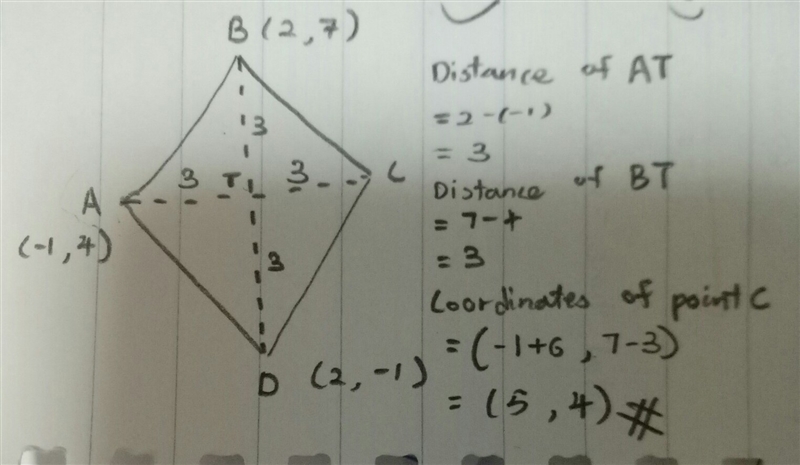 B (2, 7)
3
3 T 3
A
C
(-1, 4)
3
D (2, -1)
Distance of AT
= 2 - (-1)
= 3
Distance of BT
= 7 - 4
= 3
Coordinates of point C
= (-1+6, 7-3)
= (5, 4) #